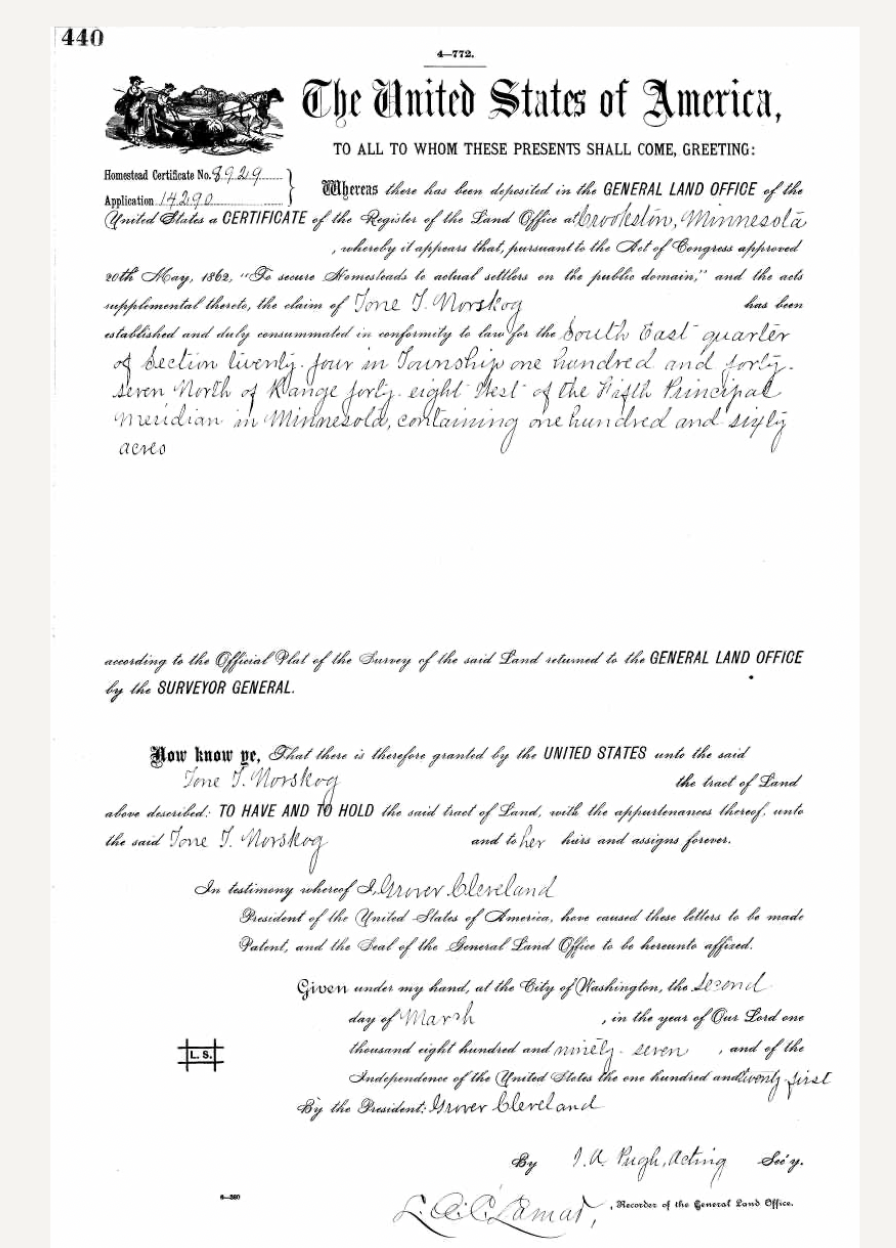 440
4—772.
The United States of America,
TO ALL TO WHOM THESE PRESENTS SHALL COME, GREETING:
Homestead Certificate No. 8929
Application 14290
Whereas there has been deposited in the GENERAL LAND OFFICE of the
United States a CERTIFICATE of the Register of the Land Office at Crookston, Minnesota
, whereby it appears that, pursuant to the Act of Congress approved
20th May, 1862, “To secure Homesteads to actual settlers on the public domain,” and the acts
supplemental thereto, the claim of Tone T. Norskog has been
established and duly consummated in conformity to law for the South East quarter
of Section twenty-four in Township one hundred and forty-
seven North of Range forty-eight West of the Fifth Principal
Meridian in Minnesota, containing one hundred and sixty
acres
according to the Official Plat of the Survey of the said Land returned to the GENERAL LAND OFFICE
by the SURVEYOR GENERAL.
Now know ye, That there is therefore granted by the UNITED STATES unto the said
Tone T. Norskog the tract of Land
above described: TO HAVE AND TO HOLD the said tract of Land, with the appurtenances thereof, unto
the said Tone T. Norskog and to her heirs and assigns forever.
In testimony whereof I, Grover Cleveland
President of the United States of America, have caused these letters to be made
Patent, and the Seal of the General Land Office to be hereunto affixed.
Given under my hand, at the City of Washington, the second
day of March , in the year of Our Lord one
thousand eight hundred and ninety-seven , and of the
Independence of the United States the one hundred and twenty-first
L. S.
By the President: Grover Cleveland
By I. A. Pugh, Acting Sec'y.
L. Q. C. Lamar, , Recorder of the General Land Office.
6—380